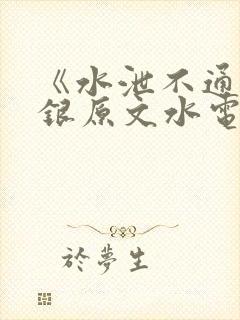 《水泄不通
銀原文水電
於夢生